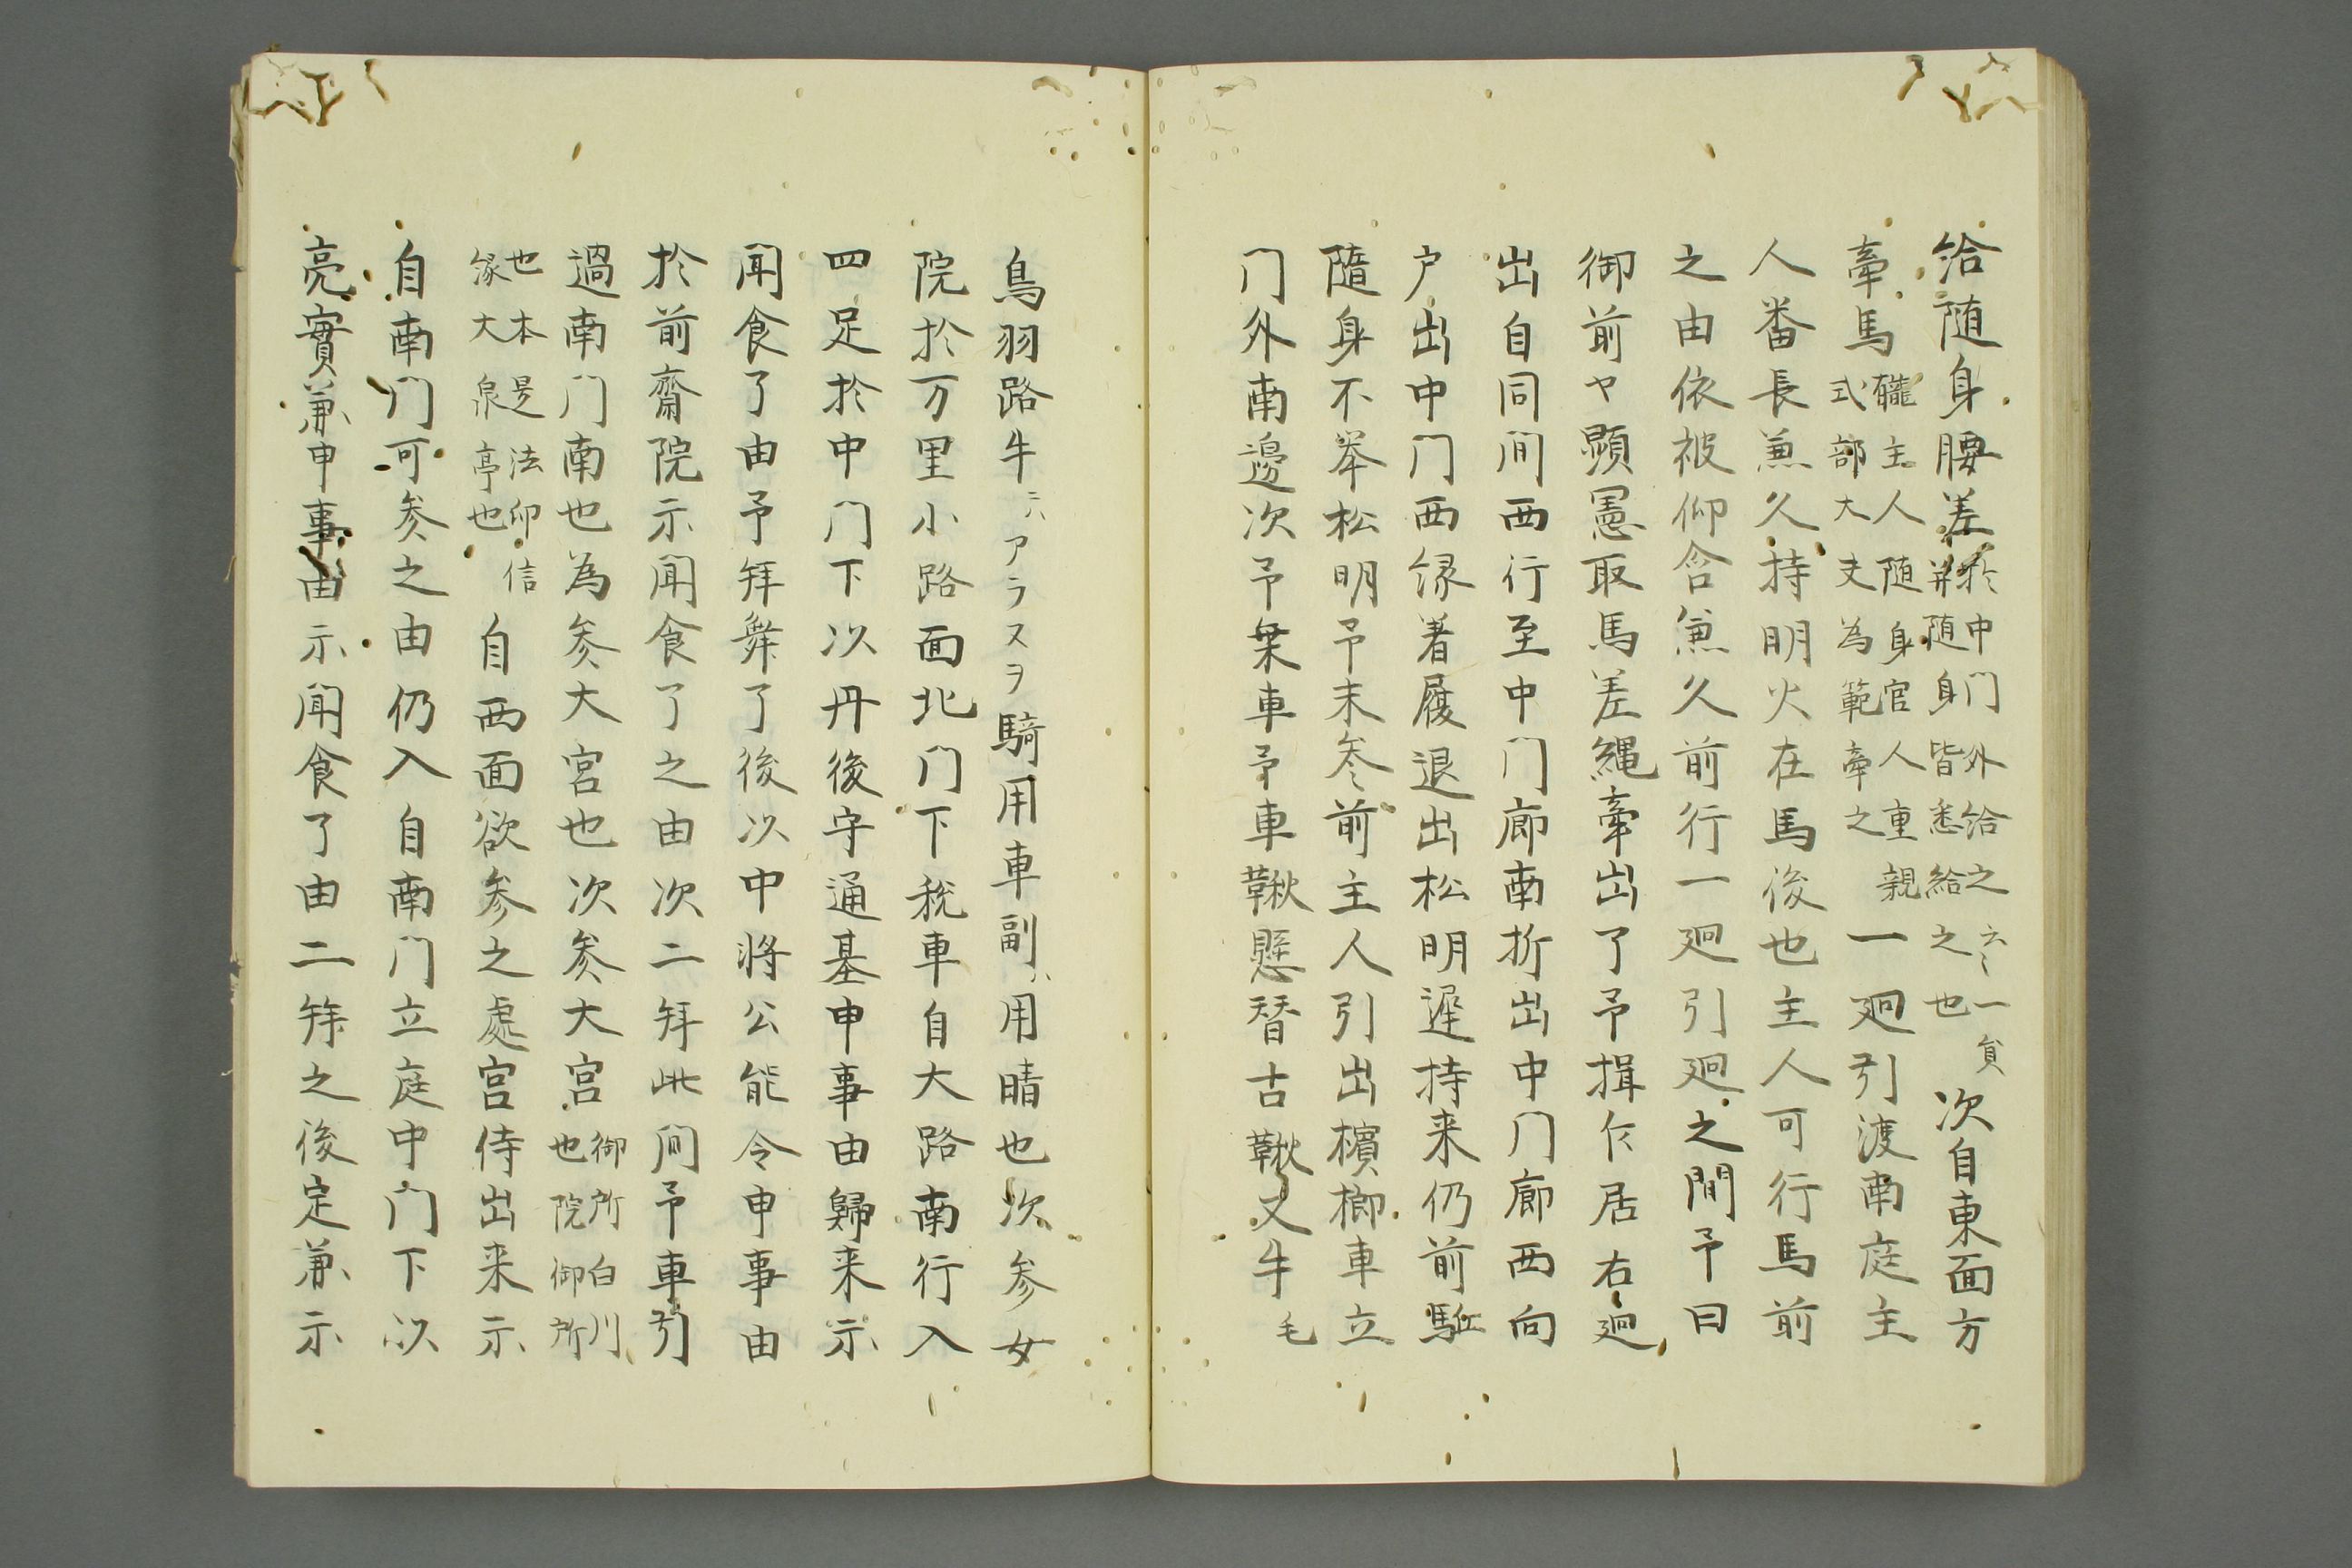 給随身腰差於中门外給之云〻一負并随身皆悉給之也次自東面方
牽馬職主人随身官人重親式部大夫為範牽之一廻引渡南庭主
人番長兼久持明火在馬後也主人可行馬前
之由依被仰含兼久前行一廻引廻之間予曰
御前ヤ顕憲取馬差縄牽出了予揖乍居右廻
出自同间西行至中门廊南折出中门廊西向
户出中门西縁着履退出松明遅持来仍前駈
隨身不挙松明予末参前主人引出檳榔車立
门外南邊次予乗車予車鞦懸替古鞦又牛毛
鳥羽路牛ニハアラスヲ騎用車副ハ用晴也次参女
院於万里小路面北门下税車自大路南行入
四足於中门下以丹後守通基申事由歸来示
聞食了由予拜舞了後以中將公能令申事由
於前齋院示聞食了之由次二拜此间予車引
過南门南也為参大宮也次参大宮御所白川也院御所
也本是法印信縁大泉亭也自西面欲参之處宮侍出来示
自南门可参之由仍入自南门立庭中门下以
亮實兼申事由示聞食了由二拜之後定兼示